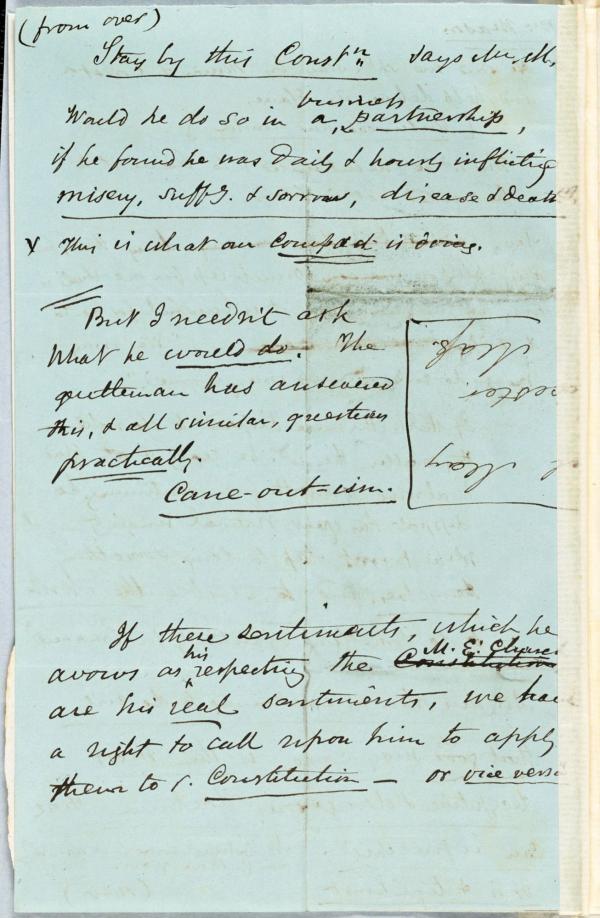 (from over)
Stay by this Constn says Mr. M.
Would he do so in a business partnership,
if he found he was daily & hourly inflicting
misery, suffg. & sorrow, disease & death
This is what our compact is doing.
But I needn't ask
what he would do. The
gentleman has answered
this, & all similar, questions
practically.
Come-out-ism.
If these sentiments, which he
avows as his respecting the Constitution M. E. Church
are his real sentiments, we have
a right to call upon him to apply
them to Constitution — or vice versa